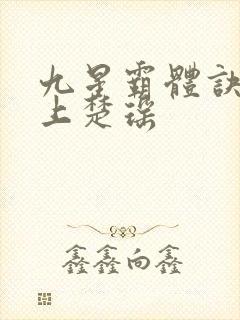 九星霸體訣
上楚瑤
鑫鑫向鑫